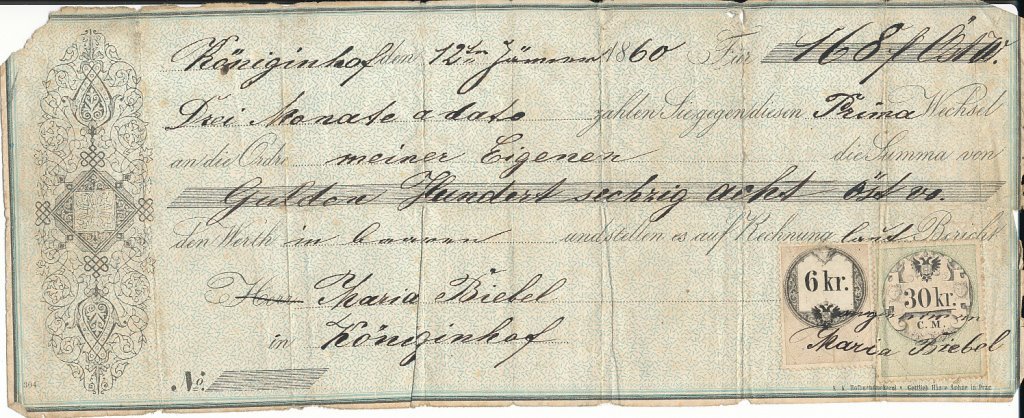 Königinhof den 12ten Jänner 1860 Für 168 f Öst W.
Drei Monate a dato zahlen Sie gegen diesen Prima Wechsel
an die Ordre meiner Eigenen die Summa von
Gulden Hundert sechzig acht öst w.
den Werth in baaren und stellen es auf Rechnung laut Bericht
Herr Maria Biebel
in Königinhof
6 kr.
30 kr.
C. M.
angenommen
Maria Biebel
No.
304
Gottlieb Haase Söhne in Prag